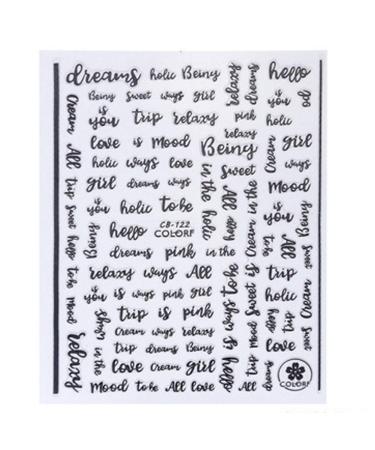 dreams holic Being relaxy dreams hello
Being sweet ways girl
is you trip relaxy pink is you do
relaxy holic
Cream love is Mood Being Cream girl
All holic ways love in the holic sweet All
trip girl dreams ways relaxy Mood
sweet is you holic to be Cream in the is you Being
hello hello CB-122 hello All
to be Being COLORF to be
Mood dreams pink in the sweet
relaxy ways All is ways to be trip
is you is ways pink girl holic
girl trip is pink Being is sweet Cream
in the Cream ways relaxy Mood hello Being
relaxy trip dreams Being trip
love Cream girl hello love is
Mood to be All love COLORF